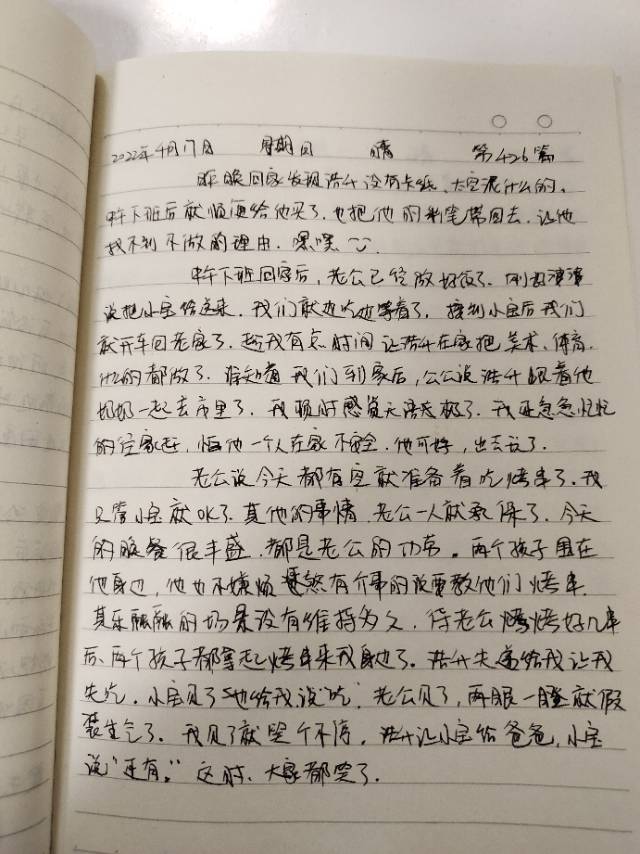 2022年4月17日 星期日 晴 第426篇
昨晚回家发现浩升没有卡纸、太空泥什么的,
中午下班后就顺便给他买了,也把他的彩笔带回去,让他
找不到不做的理由,嘿嘿
中午下班回家后,老公已经做好饭了。刚好滨滨
说把小宝给送来,我们就边吃边等着了。接到小宝后我们
就开车回老家了。趁我有点时间让浩升在家把美术、体育、
什么的都做了。谁知道我们到家后,公公说浩升跟着他
奶奶一起去市里了,我顿时感觉无语太极了。我还急急忙忙
的往家赶,怕他一个人在家不安全,他可好,出去玩了。
老公说今天都有空就准备着吃烤串了。我
只管小宝就OK了,其他的事情,老公一人就承保了。今天
的晚餐很丰盛,都是老公的功劳。两个孩子围在
他身边,他也不嫌烦,煞有介事的说要教他们烤串。
其乐融融的场景没有维持多久,待老公烤好几串
后,两个孩子都拿起烤串来我身边了。浩升先递给我让我
先吃,小宝见了也给我说“吃”,老公见了,两眼一瞪就假
装生气了。我见了就笑个不停,浩升让小宝给爸爸,小宝
说“还有。”这时,大家都笑了。